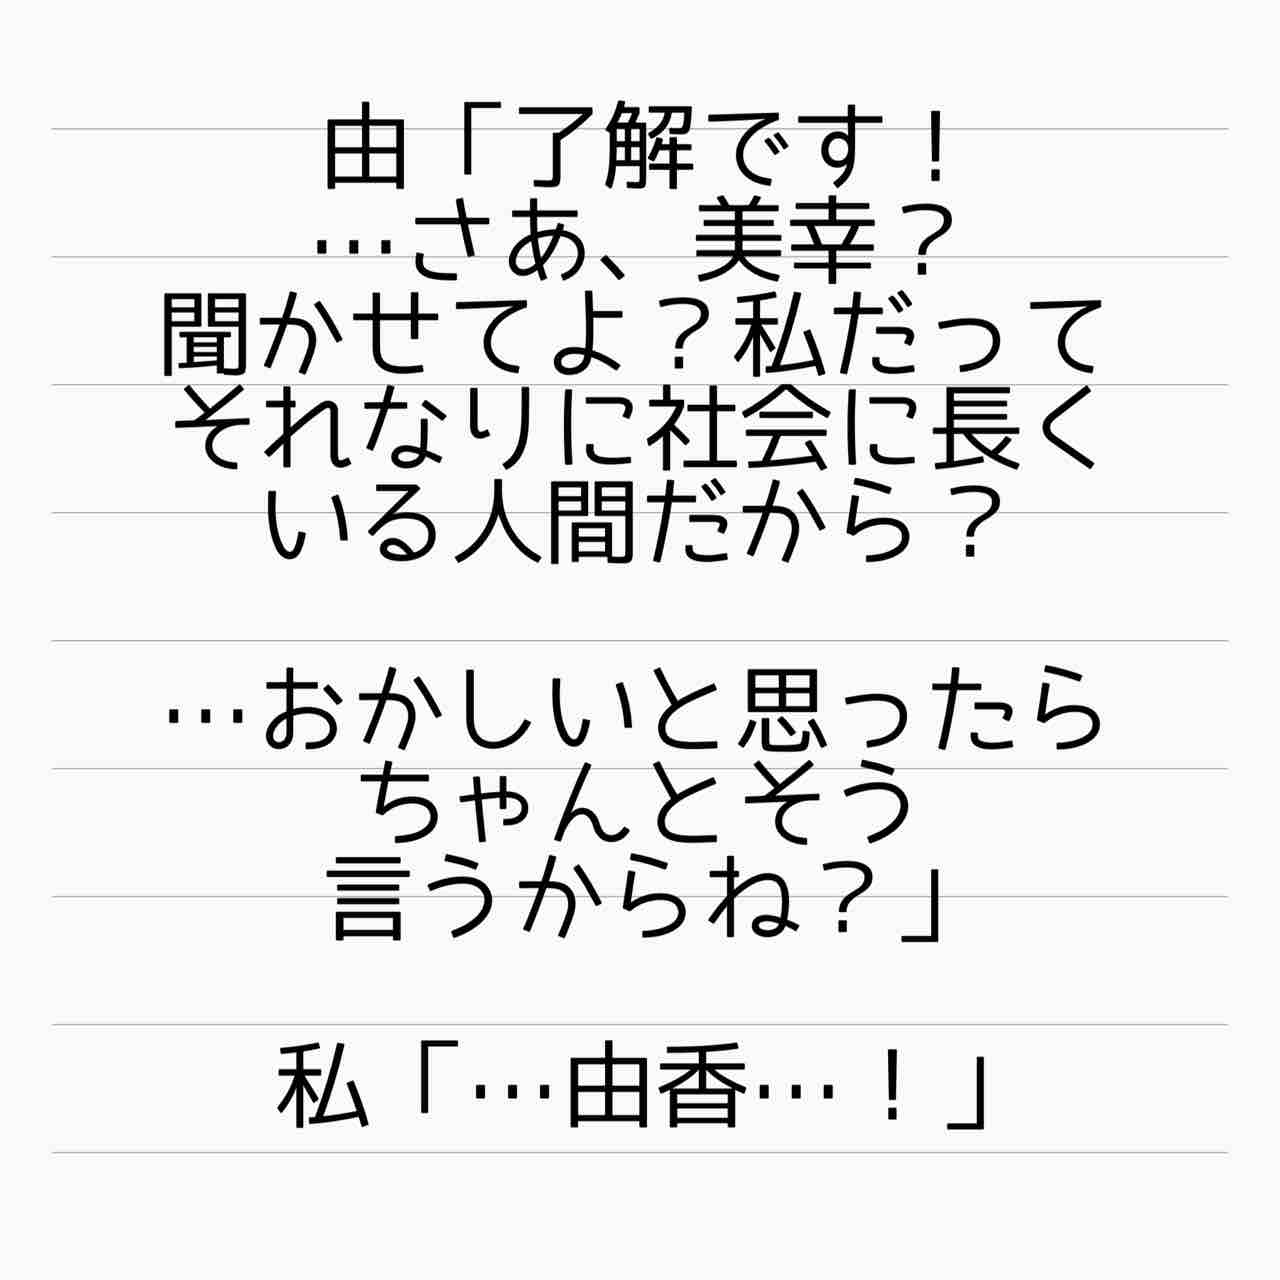 由「了解です！
…さあ、美幸？
聞かせてよ？私だって
それなりに社会に長く
いる人間だから？
…おかしいと思ったら
ちゃんとそう
言うからね？」
私「…由香…！」